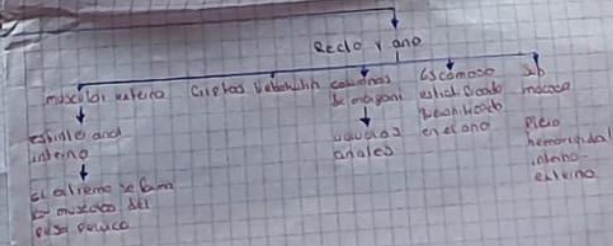 Recto y ano
muscular externa
esfinter anal
interno
el externo se forma
los musculos del
piso pelvico
Criptas
columnas
de morgani
valvulas
anales
Escamoso
estratificado
en el ano
sub
mucosa
Plexo
hemorroidal
interno-
externo